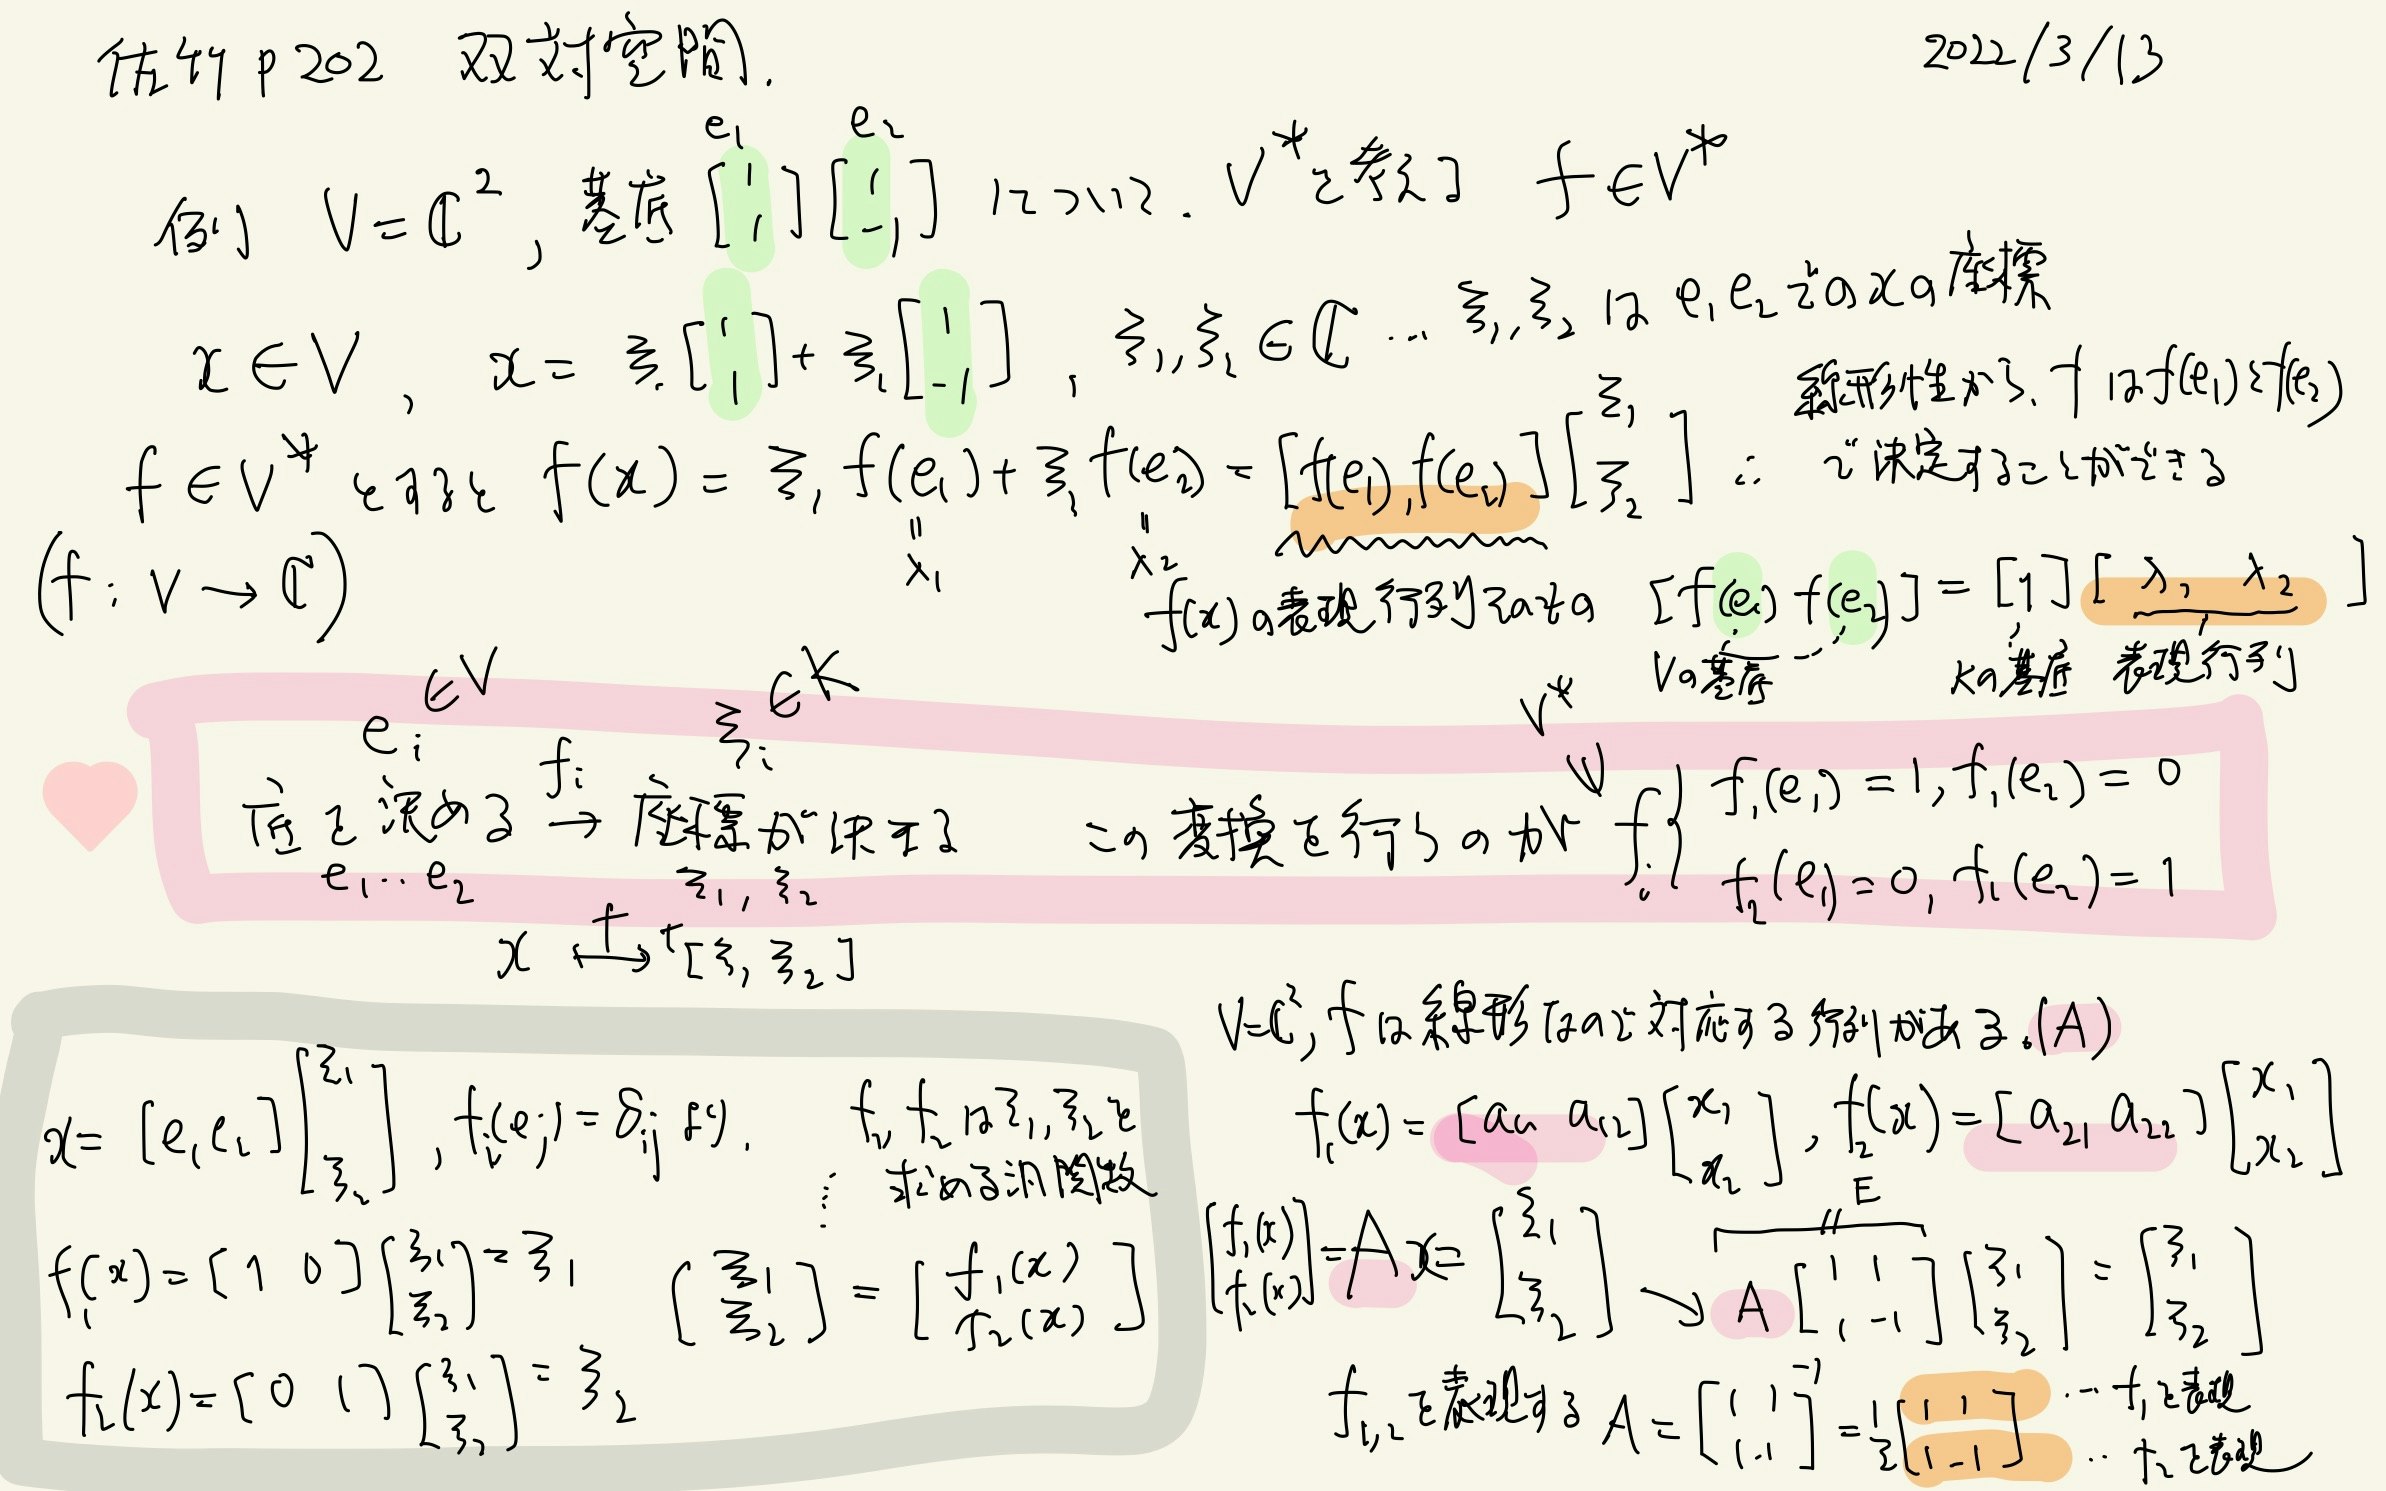 佐竹 p202 双対空間. 2022/3/13
e₁ e₂
例) V=ℂ², 基底 [1 1] [1 -1] について. V*を考える f∈V*
x∈V, x= ξ₁[1 1]+ξ₂[1 -1], ξ₁,ξ₂∈ℂ … ξ₁,ξ₂ は e₁e₂でのxの座標
f∈V* とすると f(x)=ξ₁f(e₁)+ξ₂f(e₂)=[f(e₁),f(e₂)][ξ₁ ξ₂] ∴ 線形性から、f は f(e₁)とf(e₂)
で決定することができる
(f: V→ℂ) = λ₁ = λ₂
f(x)の表現行列そのもの [f(e₁) f(e₂)] = [1][λ₁ λ₂]
Vの基底 Kの基底 表現行列
eᵢ ∈V ξᵢ ∈K V*
底を決める fᵢ → 座標が決まる この変換を行うのが fᵢ { f₁(e₁)=1, f₁(e₂)=0
e₁‥e₂ ξ₁, ξ₂ f₂(e₁)=0, f₂(e₂)=1
x f↦ ᵗ[ξ₁ ξ₂]
x= [e₁e₂][ξ₁ ξ₂], fᵢ(eⱼ)=δᵢⱼ より. f₁, f₂ は ξ₁,ξ₂を
求める汎関数
f₁(x)=[1 0][ξ₁ ξ₂]=ξ₁ [ξ₁ ξ₂]=[f₁(x) f₂(x)]
f₂(x)=[0 1][ξ₁ ξ₂]=ξ₂
V=ℂ², fは線形なので対応する行列がある.(A)
f₁(x)=[a₁₁ a₁₂][x₁ x₂], f₂(x)=[a₂₁ a₂₂][x₁ x₂]
E
[f₁(x) f₂(x)]=Ax=[ξ₁ ξ₂] ↘ A[1 1 1 -1][ξ₁ ξ₂]=[ξ₁ ξ₂]
f₁,₂を表現する A=[1 1 1 -1]⁻¹=1/2[1 1 1 -1] … f₁を表現
… f₂を表現